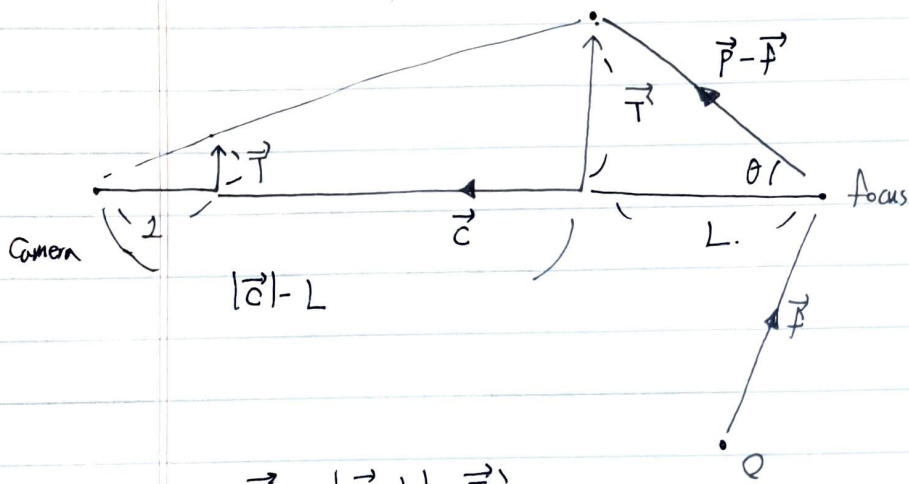 P⃗ - f⃗
T⃗
T⃗
θ
focus
Camera
1
C⃗
L.
|C⃗| - L
f⃗
O